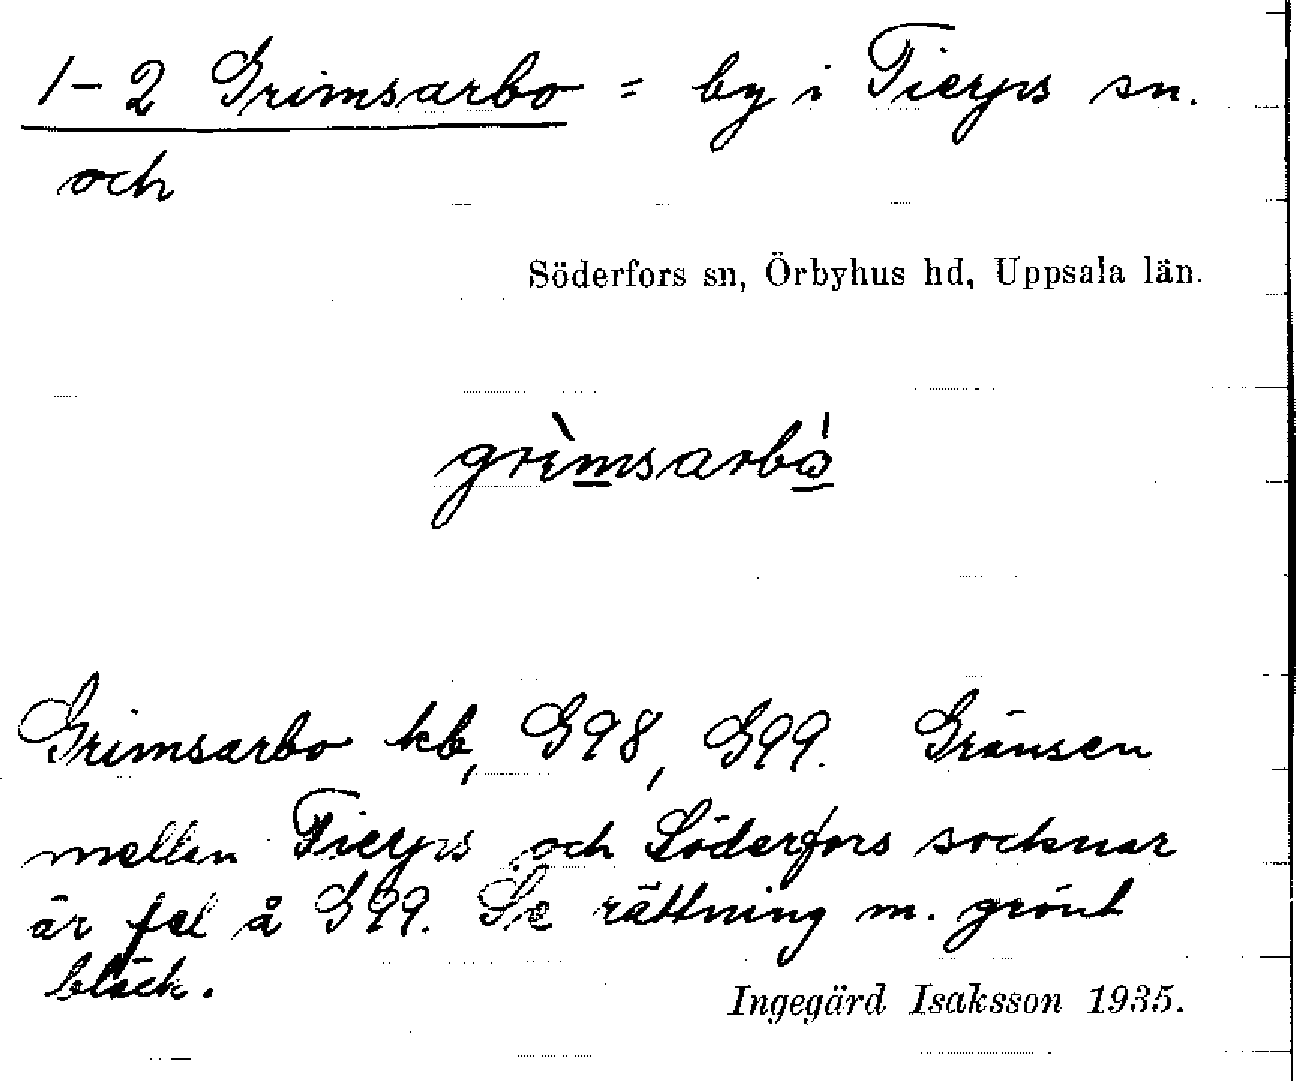 1-2 Grimsarbo = by i Tierps sn.
och
Söderfors sn, Örbyhus hd, Uppsala län.
grìmsarbó
Grimsarbo kb, G98, G99. Gränsen
mellan Tierps och Söderfors socknar
är fel å G99. Se rättning m. grönt
bläck.
Ingegärd Isaksson 1935.